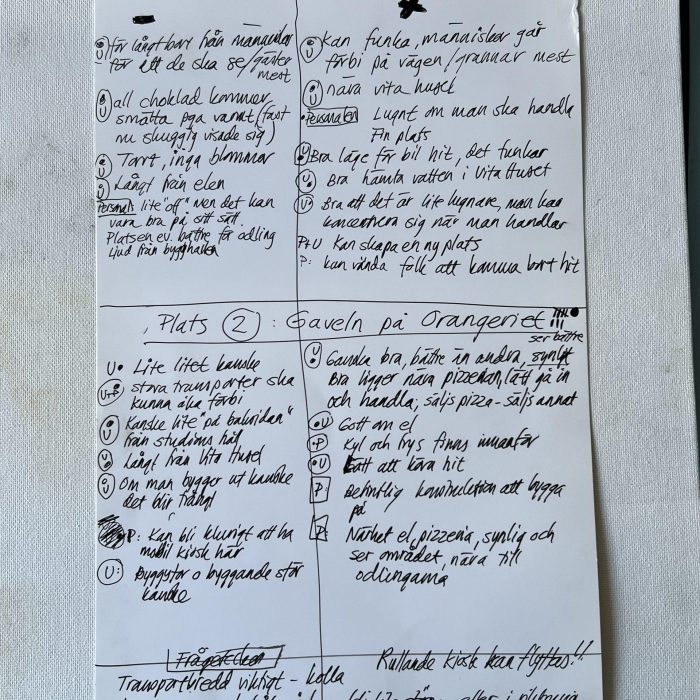 för långt bort från människor
för att de ska se/gäster
mest
all choklad kommer
smälta pga varmt (fast
nu skuggig visade sig)
Torrt, inga blommor
Långt från elen
Personal: lite "off" men det kan
vara bra på sitt sätt.
Platsen ev. bättre för odling
Ljud från bygghallen
U Kan funka, människor går
förbi på vägen/grannar mest
U nära vita huset
Personalen Lugnt om man ska handla
Fin plats
U Bra läge för bil hit, det funkar
U Bra hämta vatten i Vita Huset
U Bra att det är lite lugnare, man kan
koncentrera sig när man handlar
P+U Kan skapa en ny plats
P: kan vända folk att komma bort hit
Plats 2: Gaveln på Orangeriet
ser bättre
U Lite litet kanske
U+P stora transporter ska
kunna åka förbi
U Kanske lite "på baksidan"
från studions håll
U Långt från Vita Huset
U Om man bygger ut kanske
det blir trångt
P: Kan bli klurigt att ha
mobil kiosk här
U: Byggytor o byggande stör
kanske
U Ganska bra, bättre än andra, synligt
Bra ligger nära pizzerian, lätt gå in
och handla, säljs pizza - säljs annat
U Gott om el
P Kyl och frys finns innanför
U Lätt att köra hit
P Befintlig konstruktion att bygga
på
P Närhet el, pizzeria, synlig och
ser området, nära till
odlingarna
Frågetecken
Rullande kiosk kan flyttas!!
Transportbredd viktigt - kolla